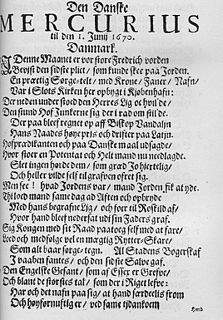 Den Danske
MERCURIUS
til den 1. Junij 1670.
Danmark.
I Denne Maanet er vor store Fredrich vorden
Beviist den sidste plict, som kunde skee paa Jorden.
En præctig Sørge-telt, med Krone, Faner, Nafn,
Var i Slots Kirken her opbygt i Kjøbenhafn:
Der neden under stoed den Herres Lig at hvile,
Den gandske Hof Junkerne sig der i rad om stilde.
Der paa blef regnet op aff Biskop Vandalin
Hans Naades høye priis och drifter paa Latin.
Hofprædikanten och paa Danske maal udsagde,
Hvor stoer en Potentat och Helt mand nu nedlagde.
Slet ingen hørde den, som grad jo hiertelig,
Och heller vilde self til grafven ofret sig.
Men see! hvad Jordens var, mand Jorden fik at yde.
Thi lood mand samme dag ald Uften och opbryde
Med hans begrafne Lig, och foer til Roskild af,
Hvor hand blef nedersat ud i sin Faders graf.
Sig Kongen med sit Raad paatoeg self med at fare;
Lied och medfølgt vel en mangtig Rytter-Skare,
Som alt baar sørge-tegn. Al Stadens Borgerskaf
I vaaben stantes, och den sidste Salve gaf.
Den Engelske Gesant, som af Essex er Grefve,
Och bland de størstes tal, som der i Riget lefve:
Har och det nafn paa sig, at hand færdelis from
Och høyfornuftig er, ved samme tidankom
Hand